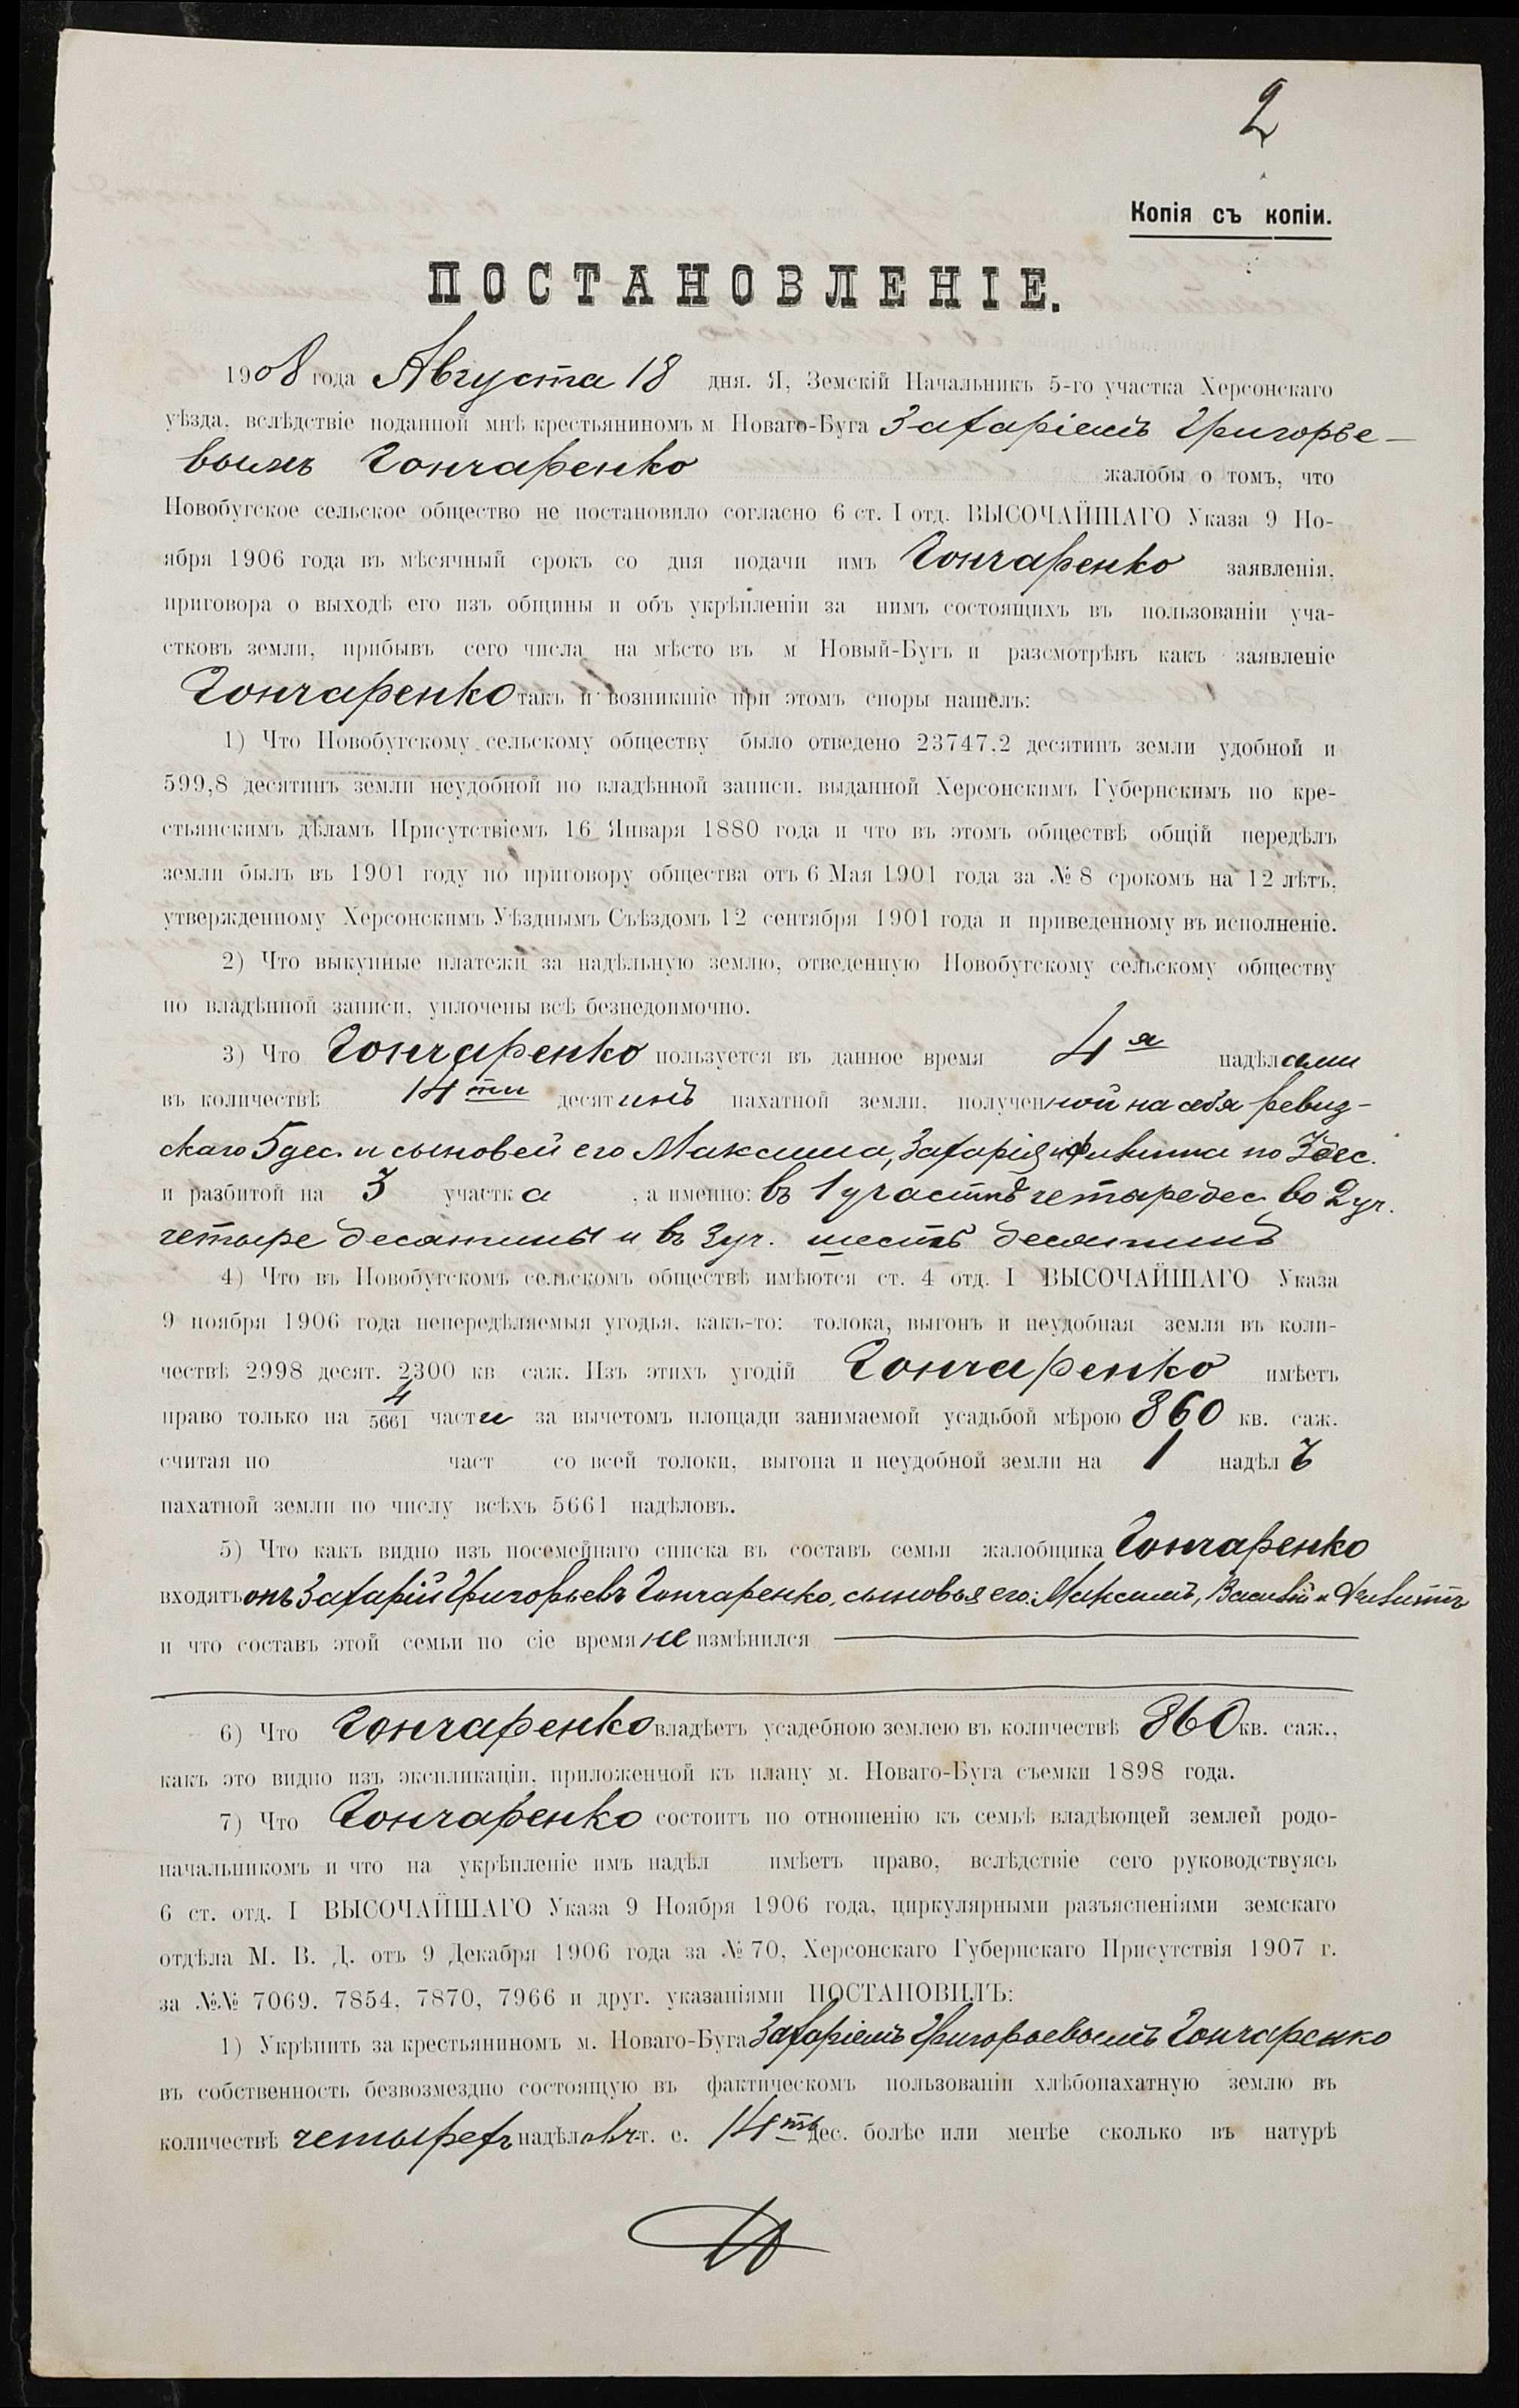 2
Копія съ копіи.
ПОСТАНОВЛЕНІЕ.
1908 года Августа 18 дня. Я, Земскій Начальникъ 5-го участка Херсонскаго
уѣзда, вслѣдствіе поданной мнѣ крестьяниномъ м Новаго-Буга Захаріемъ Григорье-
вымъ Гончаренко жалобы о томъ, что
Новобугское сельское общество не постановило согласно 6 ст. I отд. ВЫСОЧАЙШАГО Указа 9 Но-
ября 1906 года въ мѣсячный срокъ со дня подачи имъ Гончаренко заявленія,
приговора о выходѣ его изъ общины и объ укрѣпленіи за нимъ состоящихъ въ пользованіи уча-
стковъ земли, прибывъ сего числа на мѣсто въ м Новый-Бугъ и разсмотрѣвъ какъ заявленіе
Гончаренко такъ и возникшіе при этомъ споры нашелъ:
1) Что Новобугскому сельскому обществу было отведено 23747,2 десятинъ земли удобной и
599,8 десятинъ земли неудобной по владѣнной записи, выданной Херсонскимъ Губернскимъ по кре-
стьянскимъ дѣламъ Присутствіемъ 16 Января 1880 года и что въ этомъ обществѣ общій передѣлъ
земли былъ въ 1901 году по приговору общества отъ 6 Мая 1901 года за № 8 срокомъ на 12 лѣтъ,
утвержденному Херсонскимъ Уѣзднымъ Съѣздомъ 12 сентября 1901 года и приведенному въ исполненіе.
2) Что выкупные платежи за надѣльную землю, отведенную Новобугскому сельскому обществу
по владѣнной записи, уплочены всѣ безнедоимочно.
3) Что Гончаренко пользуется въ данное время 4я надѣлами
въ количествѣ 14ти десятинъ пахатной земли, полученной на себя ревиз-
скаго 5 дес. и сыновей его Максима, Захарія и Филиппа по 3 дес.
и разбитой на 3 участка , а именно: въ 1 участкѣ четыре дес. во 2 уч.
четыре десятины и въ 3 уч. шесть десятинъ
4) Что въ Новобугскомъ сельскомъ обществѣ имѣются ст. 4 отд. I ВЫСОЧАЙШАГО Указа
9 ноября 1906 года непередѣляемыя угодья, какъ-то: толока, выгонъ и неудобная земля въ коли-
чествѣ 2998 десят. 2300 кв саж. Изъ этихъ угодій Гончаренко имѣетъ
право только на 4/5661 части за вычетомъ площади занимаемой усадьбой мѣрою 860 кв. саж.
считая по част со всей толоки, выгона и неудобной земли на 1 надѣлъ
пахатной земли по числу всѣхъ 5661 надѣловъ.
5) Что какъ видно изъ посемейнаго списка въ составъ семьи жалобщика Гончаренко
входятъ онъ Захарій Григорьевъ Гончаренко, сыновья его: Максимъ, Василій и Филиппъ
и что составъ этой семьи по сіе время не измѣнился
6) Что Гончаренко владѣетъ усадебною землею въ количествѣ 860 кв. саж.,
какъ это видно изъ экспликаціи, приложенной къ плану м. Новаго-Буга съемки 1898 года.
7) Что Гончаренко состоитъ по отношенію къ семьѣ владѣющей землей родо-
начальникомъ и что на укрѣпленіе имъ надѣл имѣетъ право, вслѣдствіе сего руководствуясь
6 ст. отд. I ВЫСОЧАЙШАГО Указа 9 Ноября 1906 года, циркулярными разъясненіями земскаго
отдѣла М. В. Д. отъ 9 Декабря 1906 года за № 70, Херсонскаго Губернскаго Присутствія 1907 г.
за №№ 7069. 7854, 7870, 7966 и друг. указаніями ПОСТАНОВИЛЪ:
1) Укрѣпить за крестьяниномъ м. Новаго-Буга Захаріемъ Григорьевымъ Гончаренко
въ собственность безвозмездно состоящую въ фактическомъ пользованіи хлѣбопахатную землю въ
количествѣ четырехъ надѣловъ т. е. 14ть дес. болѣе или менѣе сколько въ натурѣ